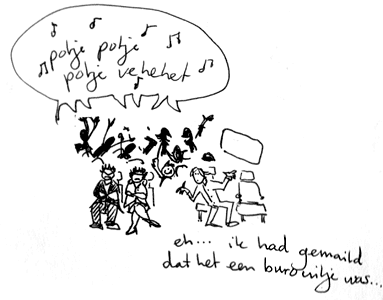 potje potje
potje vehehet
eh... ik had gemaild
dat het een buro uitje was...